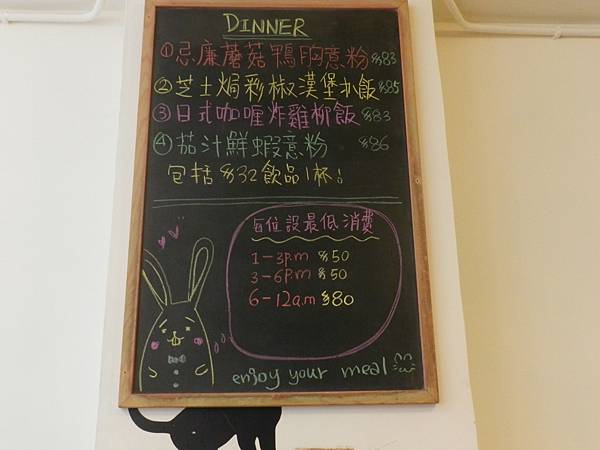 DINNER
① 忌廉蘑菇鴨胸意粉 $83
② 芝士焗彩椒漢堡扒飯 $85
③ 日式咖喱炸雞柳飯 $83
④ 茄汁鮮蝦意粉 $86
包括 $32 飲品1杯!
每位設最低消費
1-3p.m $50
3-6p.m $50
6-12a.m $80
enjoy your meal